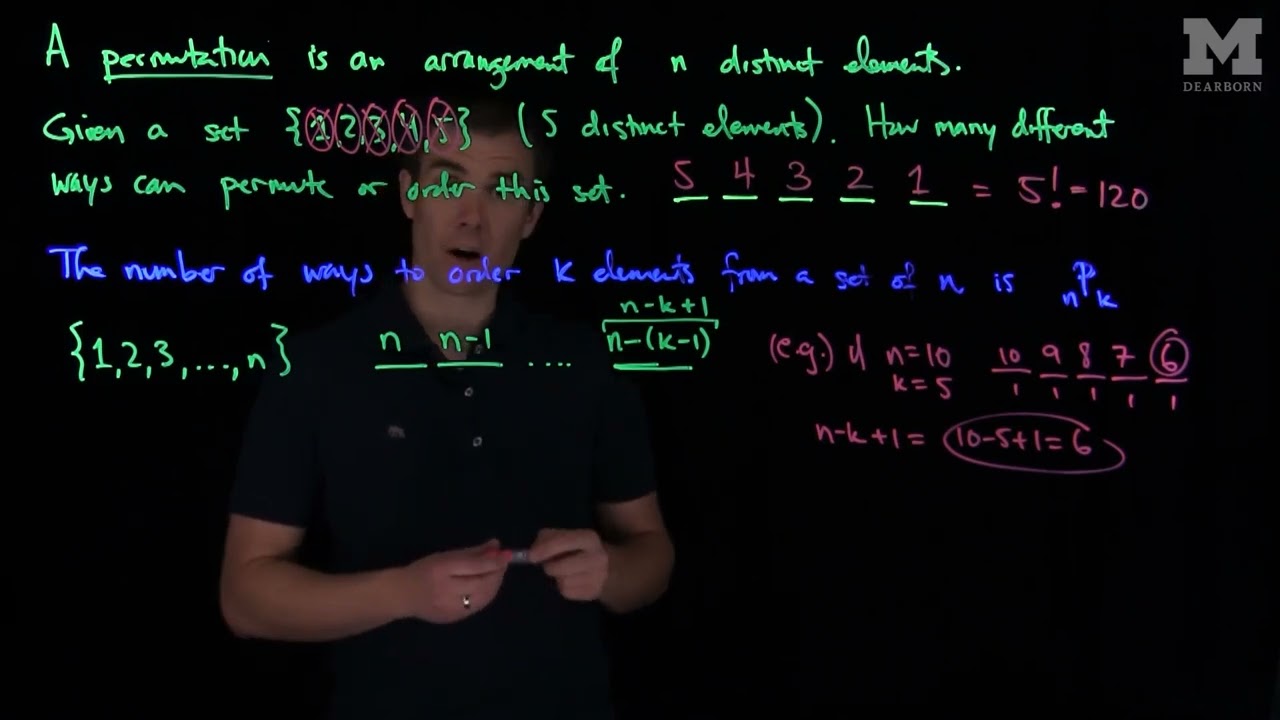 A permutation is an arrangement of n distinct elements.
M
DEARBORN
Given a set {1,2,3,4,5} (5 distinct elements). How many different
ways can permute or order this set. 5 4 3 2 1 = 5! = 120
The number of ways to order k elements from a set of n is nPk
{1,2,3,...,n} n n-1 .... n-(k-1)
n-k+1
(e.g.) if n=10 10 9 8 7 6
k=5 1 1 1 1 1
n-k+1 = 10-5+1=6